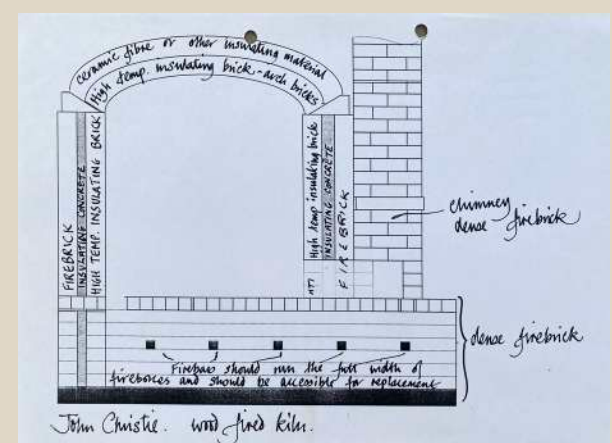 ceramic fibre or other insulating material
High temp. insulating brick - arch bricks
FIREBRICK
INSULATING CONCRETE
HIGH TEMP. INSULATING BRICK
High temp insulating brick
INSULATING CONCRETE
FIREBRICK
HTI
chimney
dense firebrick
Firebars should run the full width of
fireboxes and should be accessible for replacement
dense firebrick
John Christie. wood fired kiln.